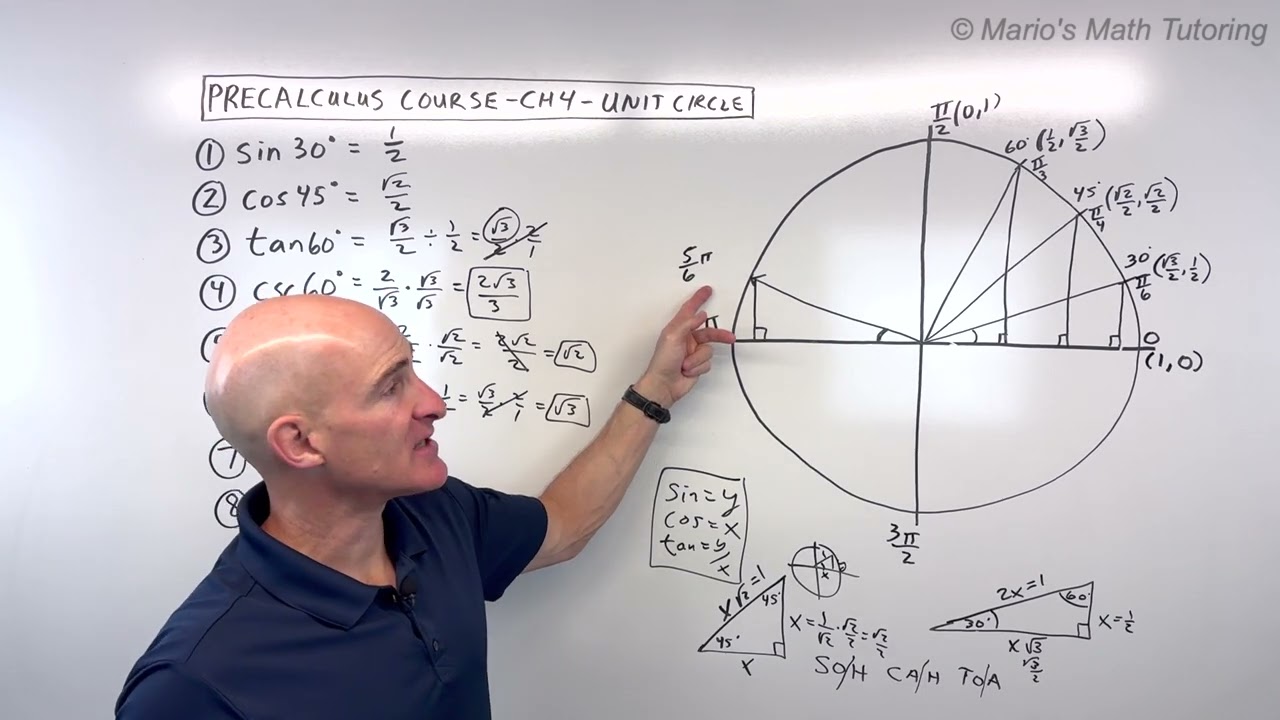 © Mario's Math Tutoring
PRECALCULUS COURSE - CH4 - UNIT CIRCLE
① sin 30° = 1/2
② cos 45° = √2/2
③ tan 60° = √3/2 ÷ 1/2 = √3/2 · 2/1
④ csc 60° = 2/√3 · √3/√3 = 2√3/3
· √2/√2 = 2√2/2 = √2
= √3/2 · 2/1 = √3
7
8
π/2 (0,1)
60° (1/2, √3/2)
π/3
45° (√2/2, √2/2)
π/4
30° (√3/2, 1/2)
π/6
5/6 π
π
0
(1,0)
3π/2
sin = y
cos = x
tan = y/x
x√2 = 1
45°
45°
x
x = 1/√2 · √2/2 = √2/2
2x = 1
60°
30°
x = 1/2
x√3
√3/2
SO/H CA/H TO/A